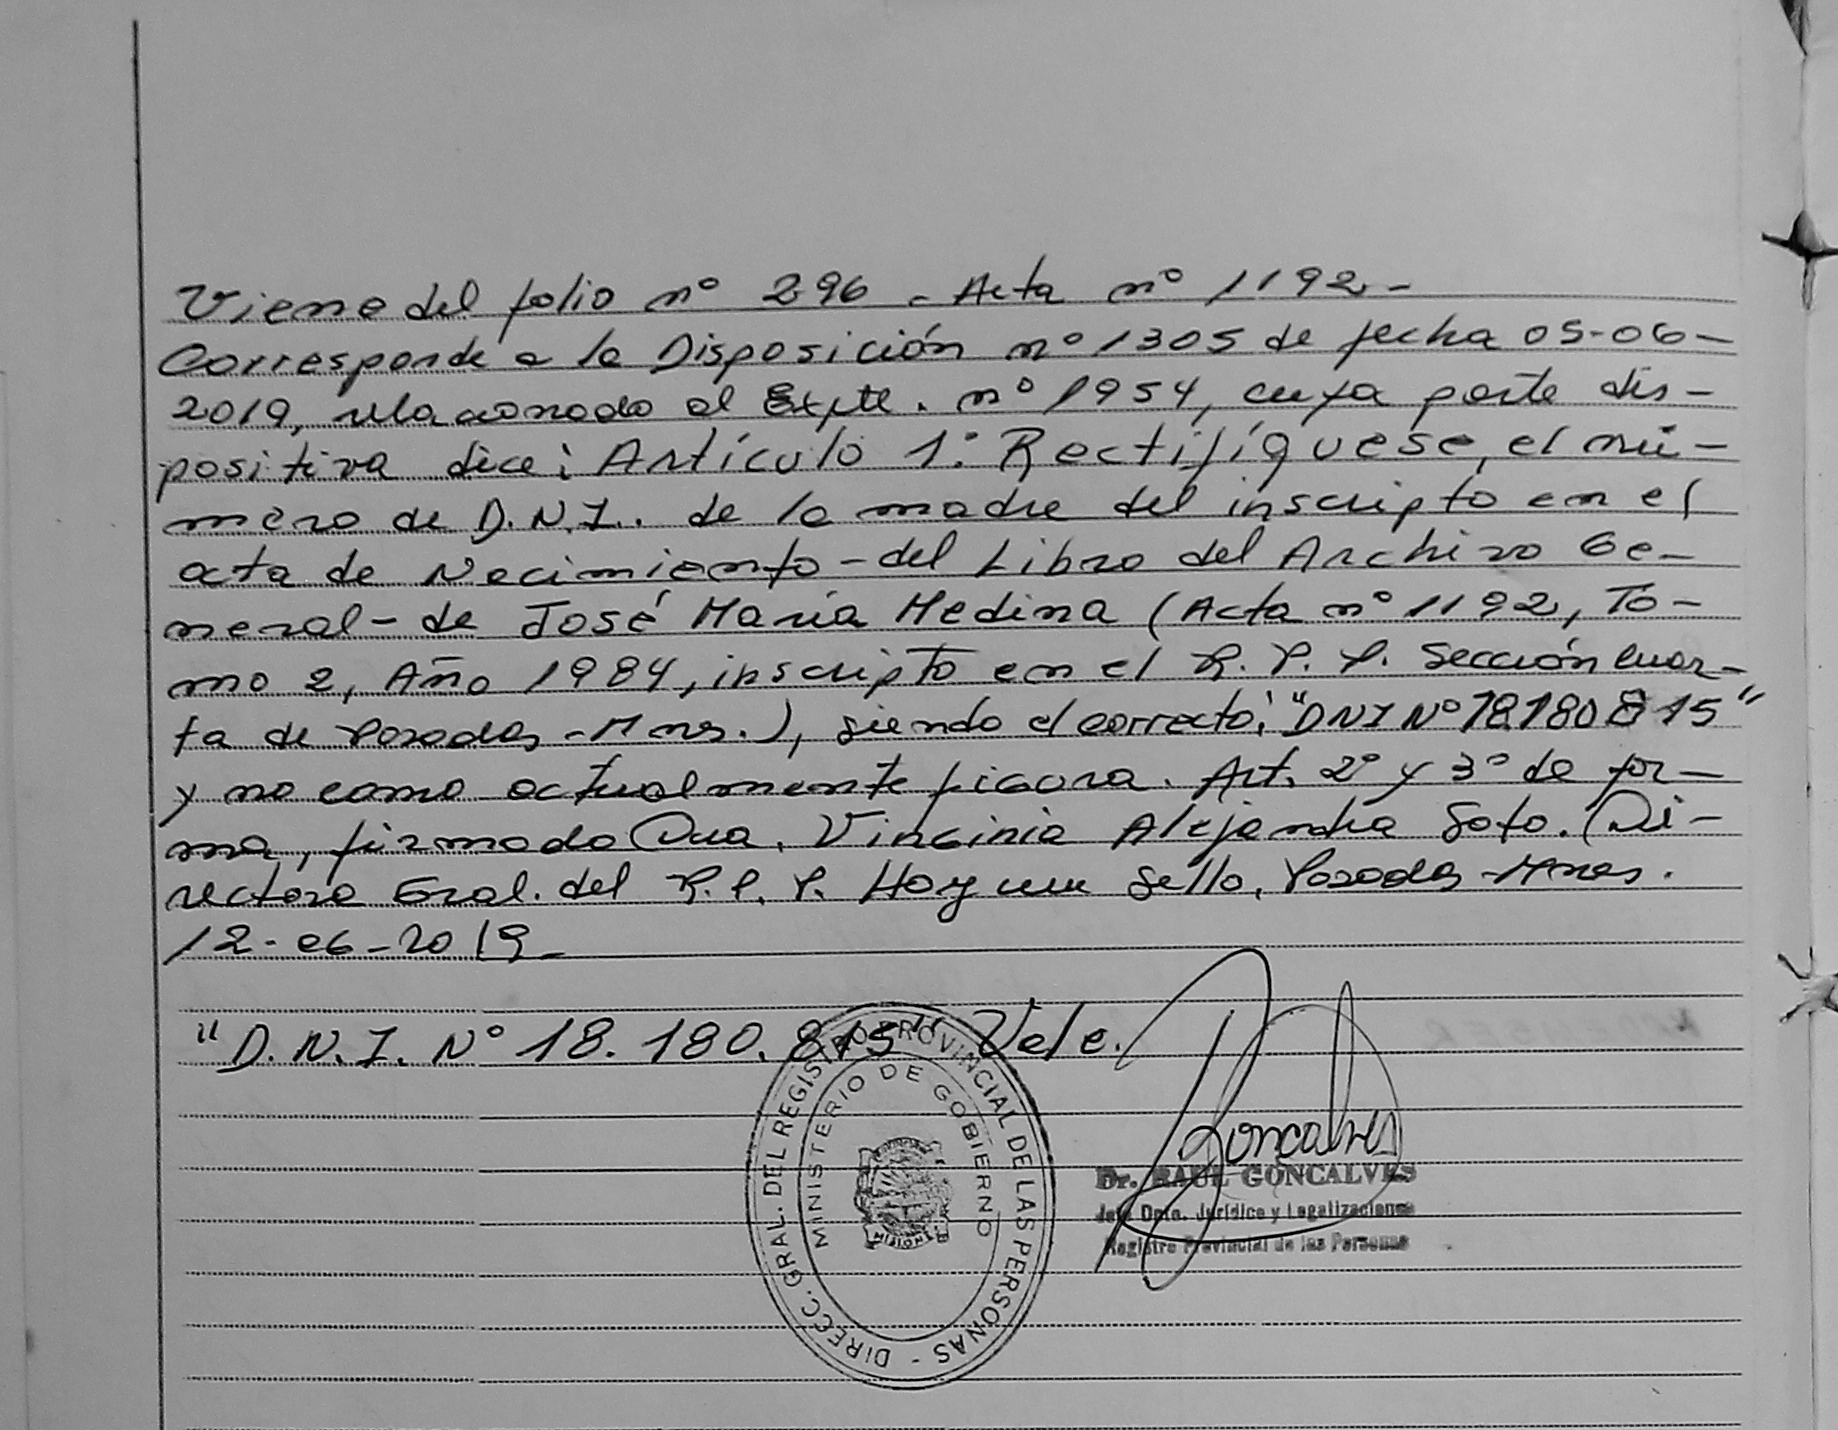 Viene del folio nº 296 - Acta nº 1192.-
Corresponde a la Disposición nº 1305 de fecha 05-06-
2019, relacionado al Expte. nº 1954, cuya parte dis-
positiva dice: Artículo 1º: Rectifíquese, el nú-
mero de D.N.I. de la madre del inscripto en el
acta de Nacimiento - del Libro del Archivo Ge-
neral - de José María Medina (Acta nº 1192, To-
mo 2, Año 1984, inscripto en el R. P. P. Sección Cuar-
ta de Posadas - Mnes.), siendo el correcto: "DNI Nº 18180815"
y no como actualmente figura. Art. 2º y 3º de for-
ma, firmado Dra. Virginia Alejandra Soto. (Di-
rectora Gral. del R. P. P. Hay un Sello. Posadas - Mnes.
12-06-2019_
"D.N.I. Nº 18.180.815" Vale.
DIRECC. GRAL. DEL REGISTRO PROVINCIAL DE LAS PERSONAS -
MINISTERIO DE GOBIERNO
MISIONES
Goncalves
Dr. RAUL GONCALVES
Jefe Dpto. Jurídico y Legalizaciones
Registro Provincial de las Personas